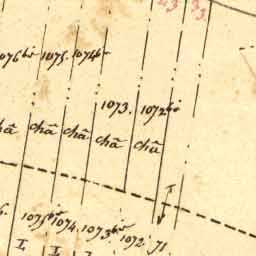 33
1076bis 1075. 1074bis
1073. 1072bis
châ châ châ châ châ
1075bis 1074. 1073bis 1072. 71